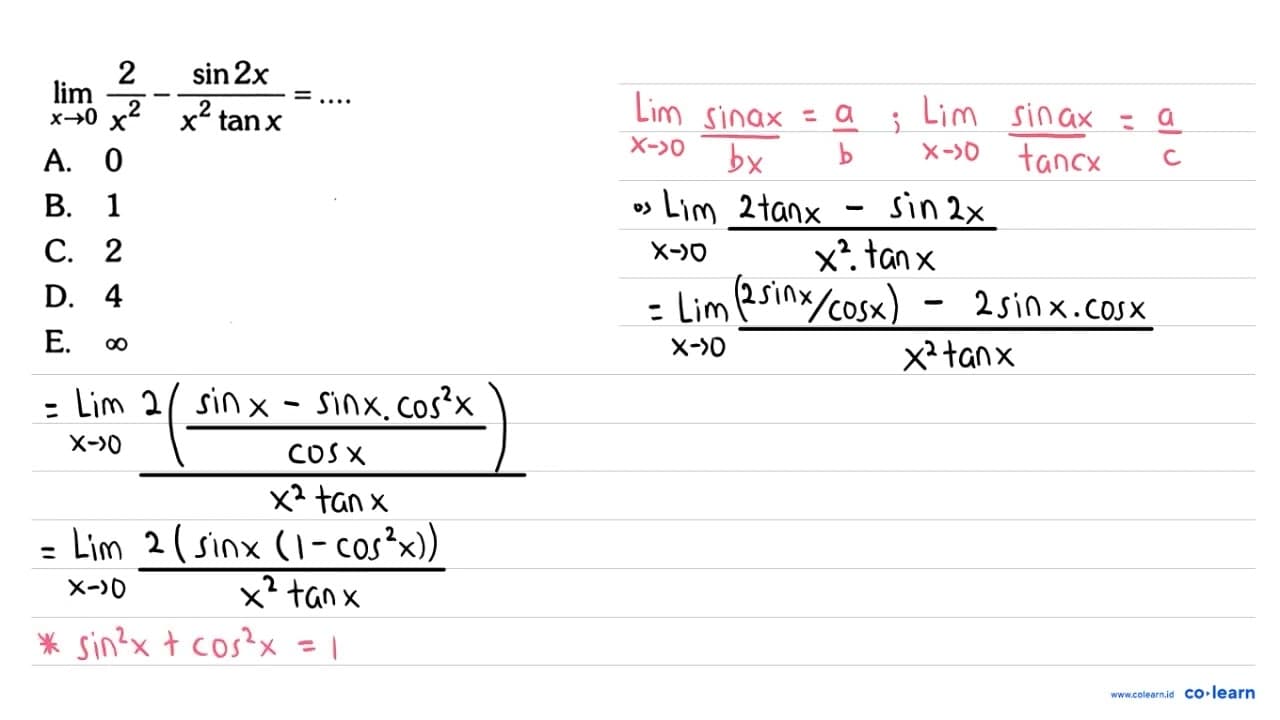 lim x→0 2/x² − sin 2x/x² tan x = ....
A. 0
B. 1
C. 2
D. 4
E. ∞
Lim x→0 sin ax/bx = a/b ; Lim x→0 sin ax/tan cx = a/c
Lim x→0 2 tan x − sin 2x/x². tan x
= Lim x→0 (2 sin x/cos x) − 2 sin x . cos x/x² tan x
= Lim x→0 2(sin x − sin x. cos² x/cos x)/x² tan x
= Lim x→0 2(sin x (1 − cos² x))/x² tan x
* sin² x + cos² x = 1
www.colearn.id co·learn